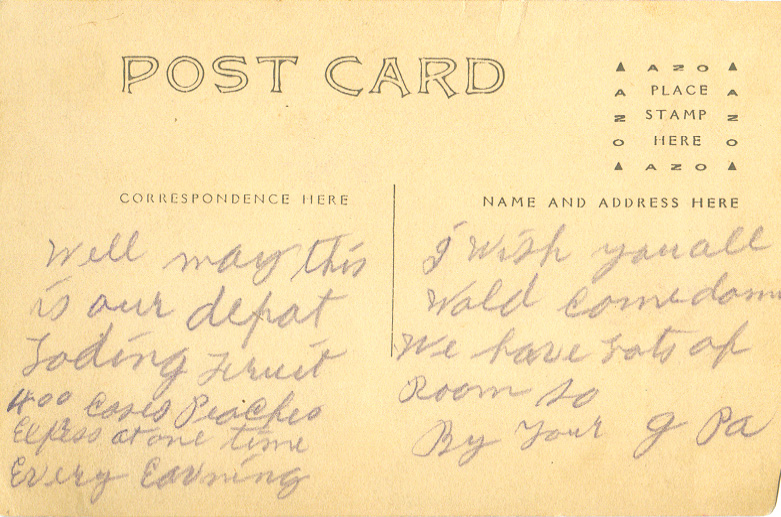 POST CARD
▲ AZO ▲
A PLACE A
Z STAMP Z
O HERE O
▲ AZO ▲
CORRESPONDENCE HERE
NAME AND ADDRESS HERE
Well may this
is our depot
Loding Fruit
400 Cases Peaches
Express at one time
Every Eavning
I Wish you all
Wold come down
We have Lots of
Room so
By Your g Pa